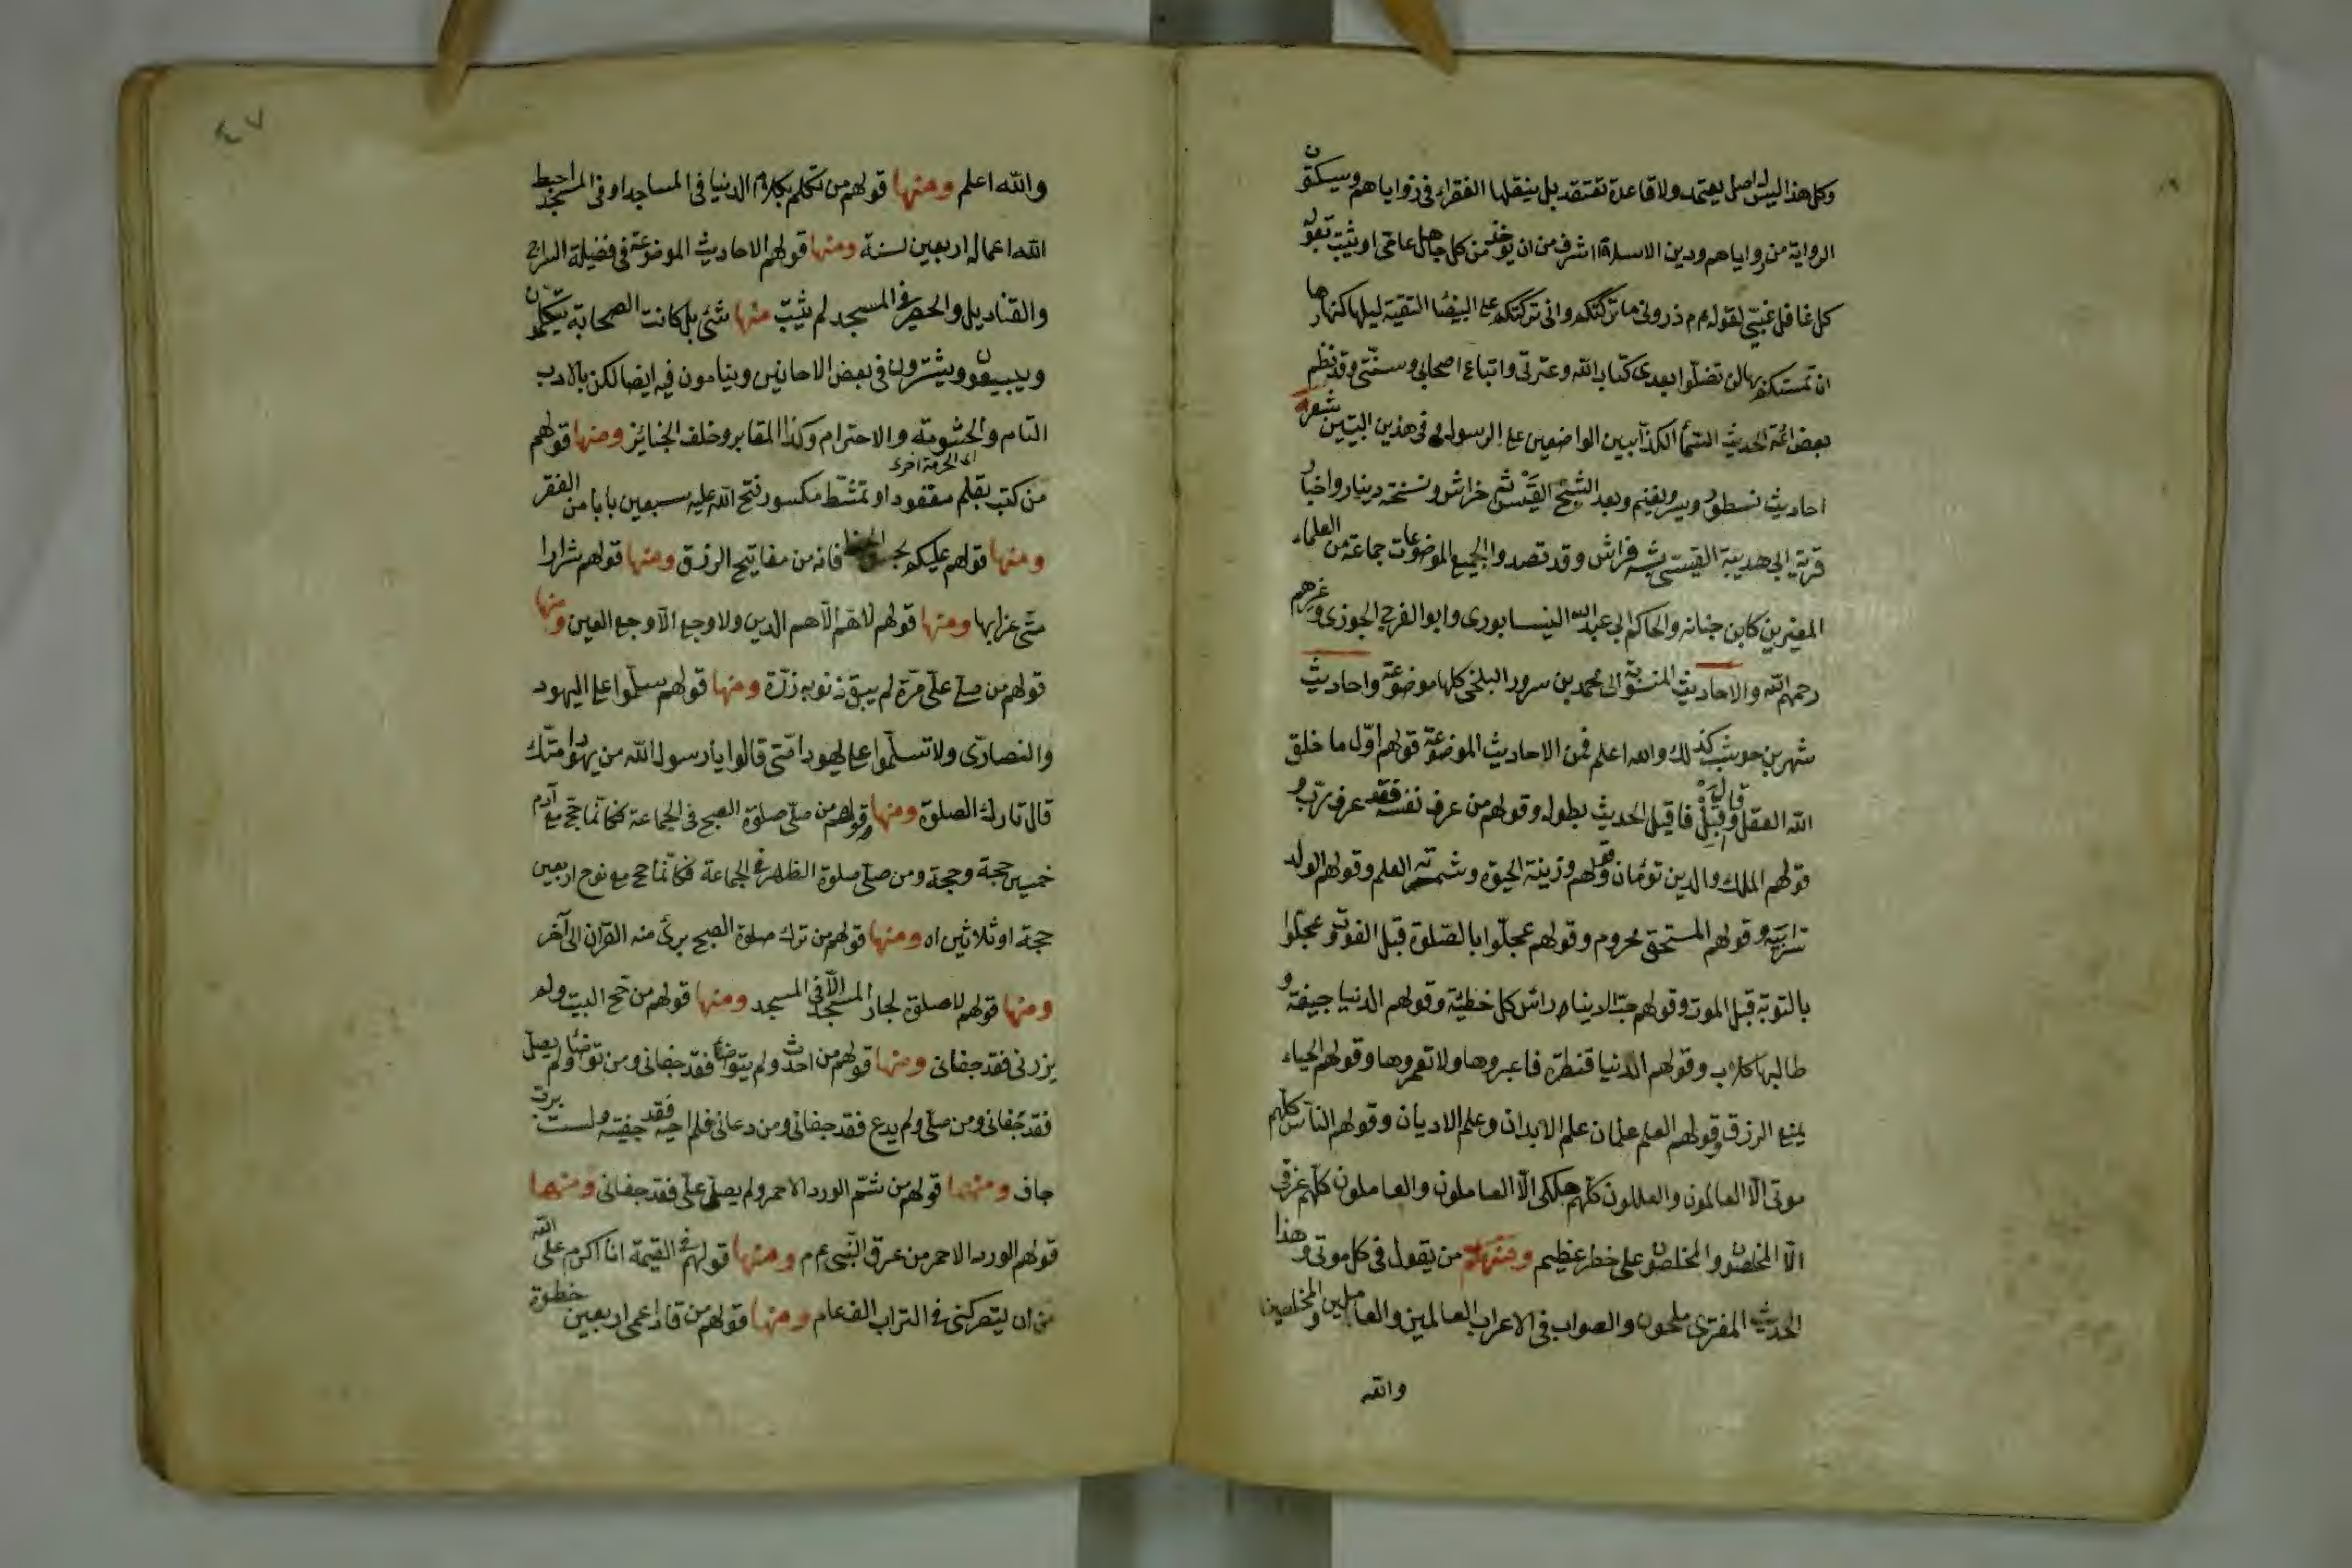 وكل هذا ليس له اصل يعتمد ولا قاعدة تعتقد بل ينقلها الفقراء فى زواياهم وسيكتون
الرواية من رواياهم ودين الاسلام اشرف من ان يؤخذ من كل جاهل عامى او يثبت بقول
كل غافل غبىّ لقوله عم م ذرونى ما تركتكم وانى تركتكم على البيضا النقية ليلها كنهارها
ان تمسكتم بها لن تضلّوا بعدى كتاب الله وعترتى واتباع اصحابى وسنّتى وقد نظم
بعض ائمة الحديث اسماء الكذابين الواضعين على الرسول فى هذين البيتين شعر
احاديث نسطور ويسر ويغنم وبعد الشيخ القيس ثم خراش ونسخة دينار واخبار
قربة ابى هدبة القيسى شبه فراش وقد تصدوا لجميع الموضوعات جماعة من العلماء
المعتبرين كابن جنانه والحاكم ابى عبد الله النيسابورى وابو الفرج الجوزى وغيرهم
رحمهم الله والاحاديث المنسوبة الى محمد بن سرور البلخى كلها موضوعة واحاديث
شهر بن حوشب كذلك والله اعلم فمن الاحاديث الموضوعة قولهم اوّل ما خلق
الله العقل وقال له اقبل فاقبل الحديث بطوله وقولهم من عرف نفسه فقد عرف ربّه و
قولهم الملك والدين توءمان وقولهم وزينة الحيوة وثمرته العلم وقولهم الولد
سرّ ابيه وقولهم المستحق محروم وقولهم عجلّوا بالصّلوة قبل الفوت وعجلّوا
بالتوبة قبل الموت وقولهم حبّ الدنيا رأس كل خطيئة وقولهم الدنيا جيفة و
طالبها كلاب وقولهم الدنيا قنطرة فاعبروها ولا تعمروها وقولهم الحياء
يمنع الرزق وقولهم العلم علمان علم الابدان وعلم الاديان وقولهم النّاس كلّهم
موتى الّا العالمون والعالمون كلّهم هلكى الّا العاملون والعاملون كلّهم غرقى
الّا المخلصون والمخلصون على خطر عظيم ومنهم من يقول فى كل موتى وهذا
الحديث المفترى ملحون والصواب فى الاعراب العالمين والعاملين والمخلصين
والله
٤٧
والله اعلم ومنها قولهم من تكلم بكلام الدنيا فى المساجد او فى المسجد احبط
الله اعماله اربعين سنة ومنها قولهم الاحاديث الموضوعة فى فضيلة السراج
والقناديل والحصير فى المسجد لم يثبت منها شئ بل كانت الصحابة يتكلمون
ويبيعون ويشترون فى بعض الاحانين وينامون فيه ايضا لكن بالادب
التام والحشومة والاحترام وكذا المقابر وخلف الجنائز ومنها قولهم
من كتب بقلم معقود او تمشّط مكسور فتح الله عليه سبعين بابا من الفقر
ومنها قولهم عليكم بحسن الخط فانه من مفاتيح الرزق ومنها قولهم شرارا
متى عزابها ومنها قولهم لا همّ الّا هم الدين ولا وجع الّا وجع العين ومنها
قولهم من صلى علىّ مرّة لم يبق ذنوبه ذرّة ومنها قولهم سلّموا على اليهود
والنصارى ولا تسلّموا على يهود امّتى قالوا يا رسول الله من يهود امّتك
قال تارك الصلوة ومنها قولهم من صلّى صلوة الصبح فى الجماعة فكانّما حج مع آدم
خمسين حجة وحجة ومن صلّى صلوة الظهر فى الجماعة فكانّما حج مع نوح اربعين
حجة او ثلاثين اه ومنها قولهم من ترك صلوة الصبح برئ منه القران الى آخر
ومنها قولهم لا صلوة لجار المسجد الّا فى المسجد ومنها قولهم من حجّ البيت ولم
يزرنى فقد جفانى ومنها قولهم من احدث ولم يتوضأ فقد جفانى ومن توضأ ولم يصل
فقد جفانى ومن صلى ولم يدع فقد جفانى ومن دعانى فلم اجبه فقد جفيته ولست بربّ
جاف ومنها قولهم من شمّ الورد الاحمر ولم يصل علىّ فقد جفانى ومنها
قولهم الورد الاحمر من عرق النّبى عم م ومنها قولهم فى القيمة انا اكرم على الله
من ان يتركنى فى التراب الف عام ومنها قولهم من قاد اعمى اربعين خطوة